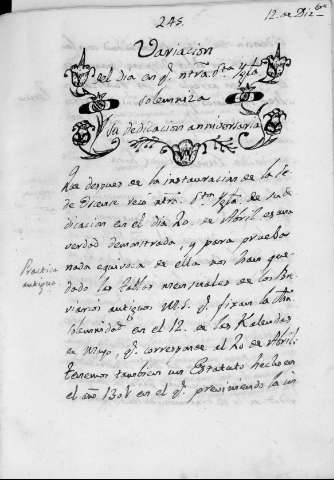 245.
12. de Diz.bre
Variacion
del dia en q. ntra. Sta. Yglª
solemniza
su dedicacion anniversaria
Que despues de la instauracion de la Se-
de rezo ntra. Sta. Yglª. de su de-
dicacion en el dia 20. de Abril es una
verdad demonstrada, y para prueba
Practica
antigua.
nada equivoca de ella nos han que-
dado las tablas mensuales de los Bre-
viarios antiguos M.S. q. fixan la
solemnidad en el 12. de las Kalendas
de Mayo q. corresponde al 20 de Abril:
tenemos tambien un Estatuto hecho en
el año en el q. previniendo la in